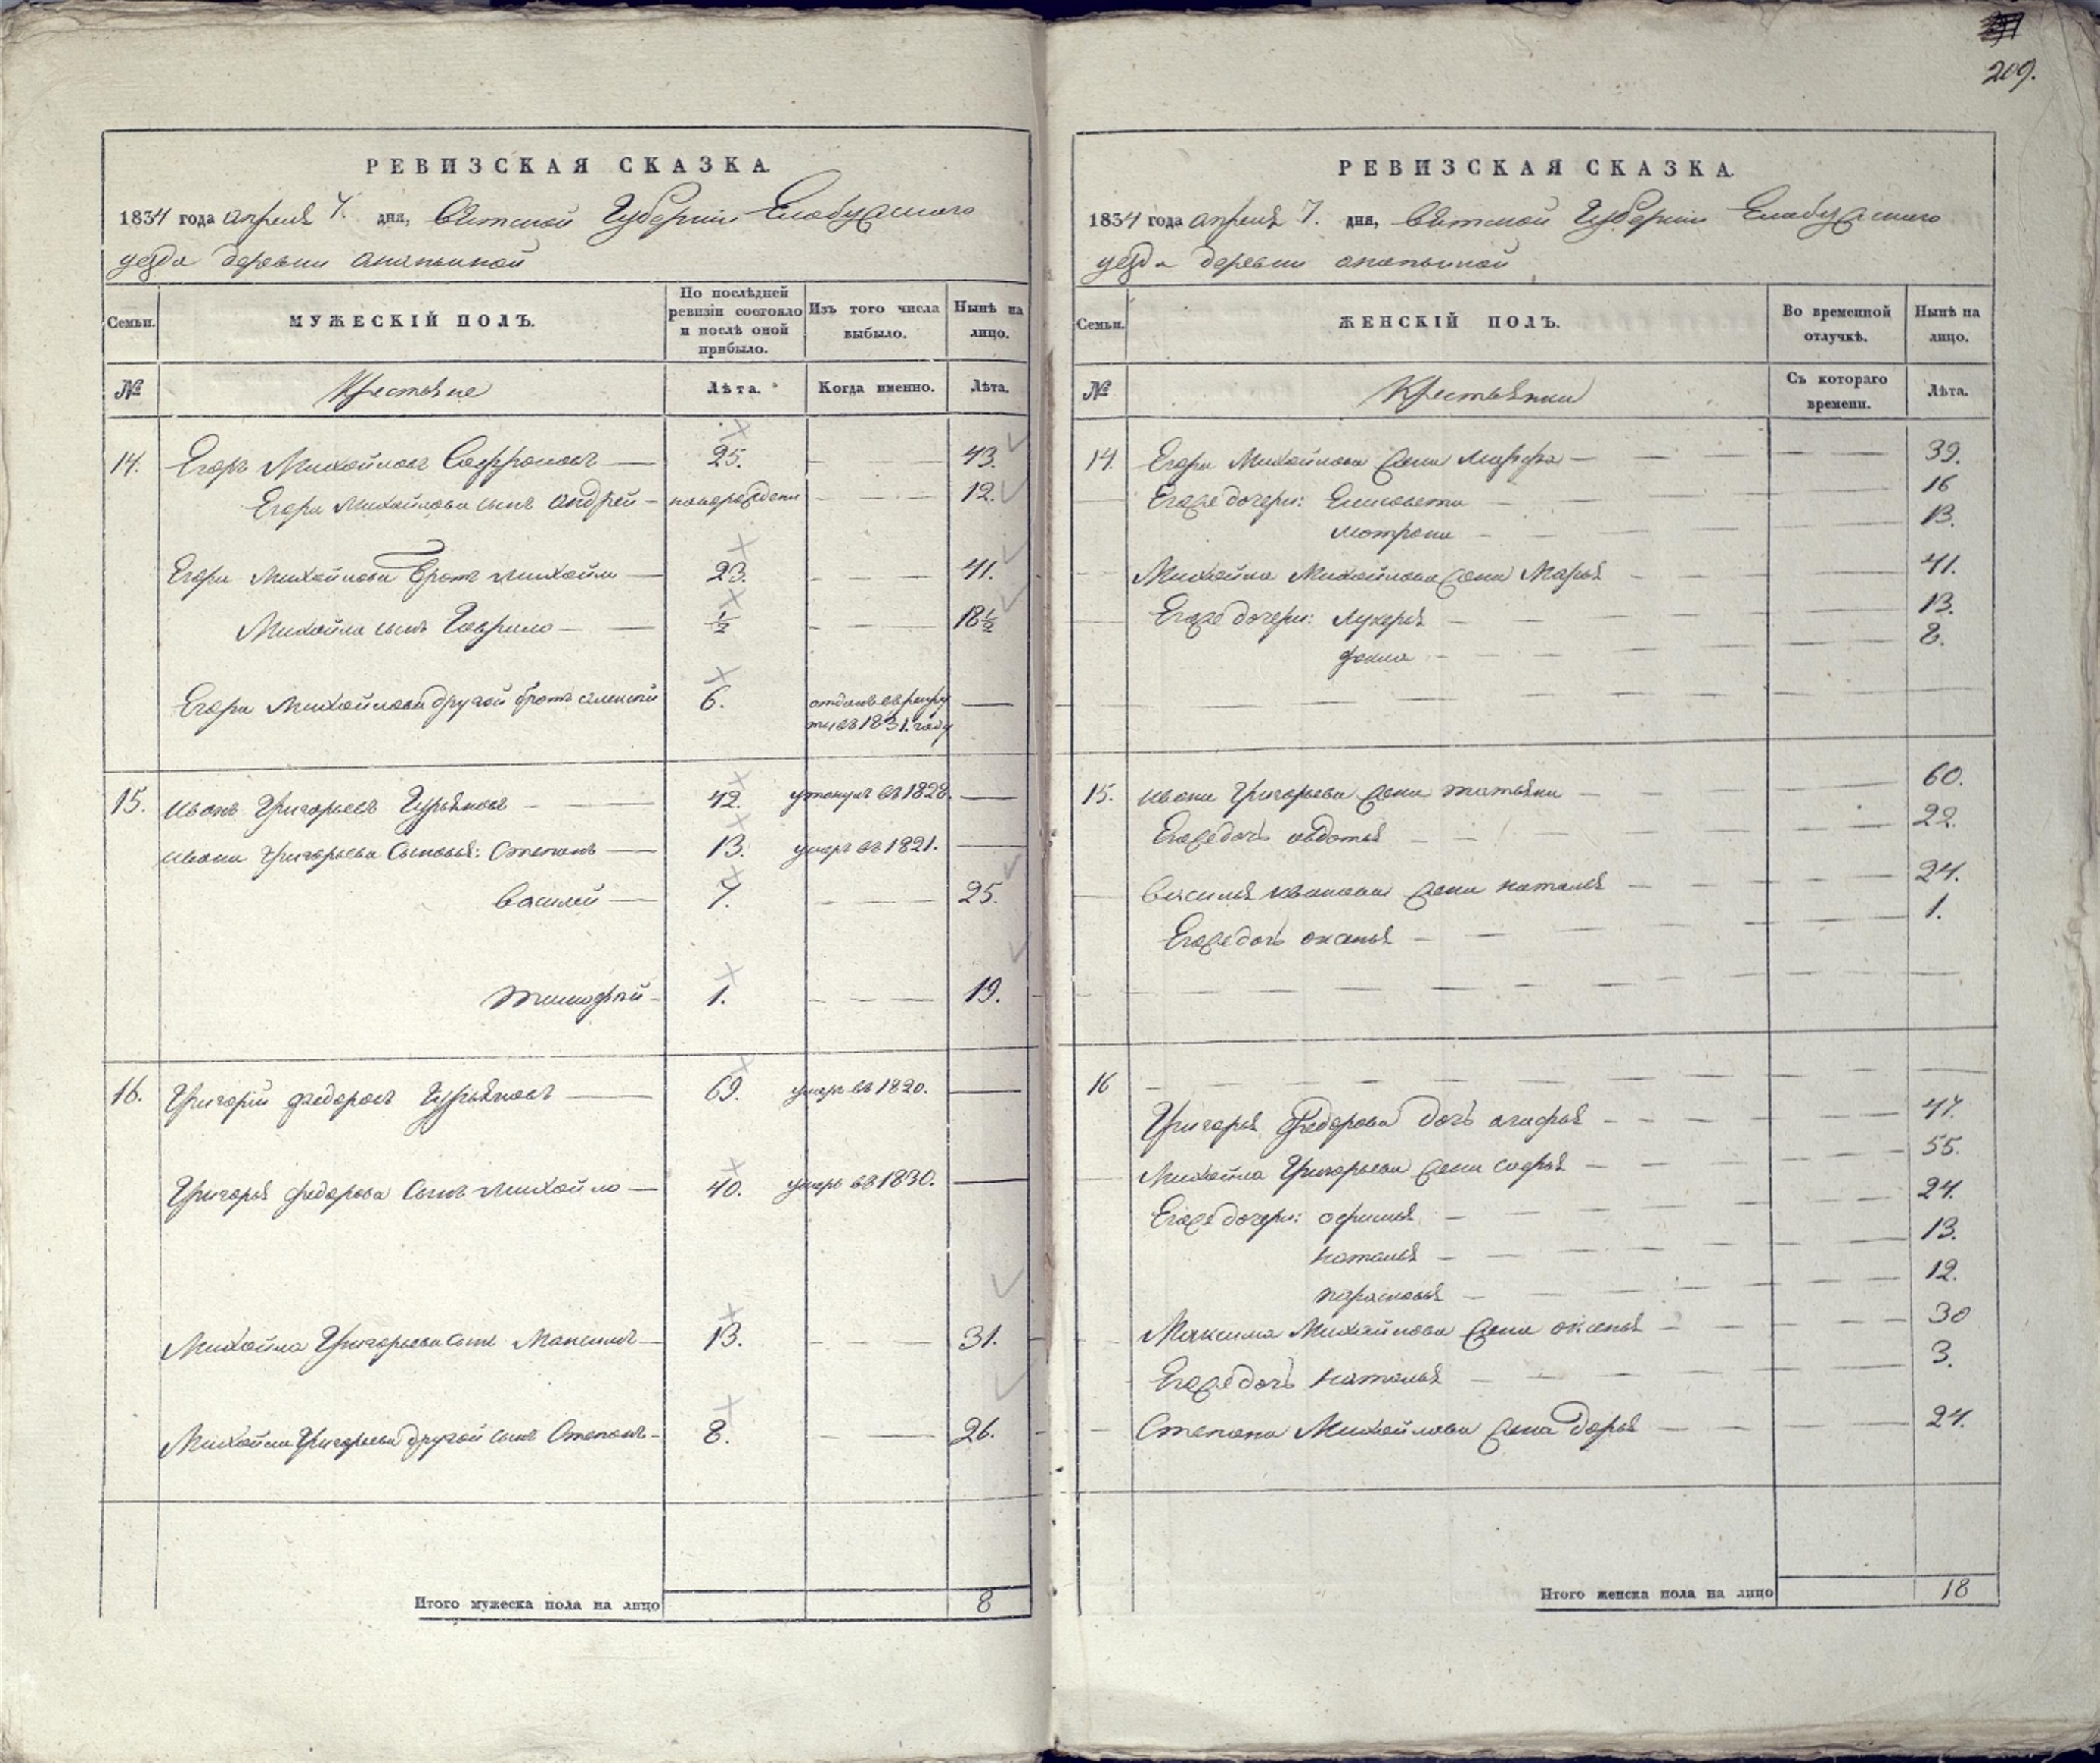 209.
РЕВИЗСКАЯ СКАЗКА.
1834 года апреля 7. дня, Вятской Губернии Елабужского
уезда деревни Ананьиной
Семьи. МУЖЕСКІЙ ПОЛЪ. По послѣдней ревизіи состояло и послѣ оной прибыло. Изъ того числа выбыло. Нынѣ на лицо.
№ Крестьяне Лѣта. Когда именно. Лѣта.
14. Егоръ Михайловъ Сафроновъ — 25. — — — 43.
Егора Михайлова сынъ Андрей — новорожденъ — — — 12.
Егора Михайлова братъ Михайло — 23. — — — 41.
Михайла сынъ Гаврило — — 1/2 — — — 18 1/2
Егора Михайлова другой братъ Алексей 6. отданъ в рекру
ты въ 1831. году —
15. Иванъ Григорьевъ Гурьяновъ — — 42. утонулъ въ 1828. —
Ивана Григорьева Сыновья: Степанъ — 13. умеръ въ 1821. —
Василей — 7. — — — 25.
Тимофей — 1. — — — 19.
16. Григорій Федоровъ Гурьяновъ — 69. умеръ въ 1820. —
Григорья Федорова Сынъ Михайло — 40. умеръ въ 1830. —
Михайла Григорьева сынъ Максимъ — 13. — — — 31.
Михайла Григорьева другой сынъ Степанъ — 8. — — 26.
Итого мужеска пола на лицо 8
РЕВИЗСКАЯ СКАЗКА.
1834 года апреля 7. дня, Вятской Губернии Елабужского
уезда деревни Ананьиной
Семьи. ЖЕНСКІЙ ПОЛЪ. Во временной отлучкѣ. Нынѣ на лицо.
№ Крестьянки Съ котораго времени. Лѣта.
14. Егора Михайлова жена Марфа — — — 39.
Егоже дочери: Елисовета — 16
Мотрона — — — 13.
Михайла Михайлова жена Марья — — — 41.
Егоже дочери: Лукерья — — — 13.
Фекла — — — 8.
15. Ивана Григорьева жена Татьяна — — 60.
Егоже дочь Овдотья — — 22.
Василья Иванова жена Наталья — — — 24.
Егоже дочь Оксенья — — — 1.
16 — — —
Григорья Федорова дочь Агафья — — — 47.
Михайла Григорьева жена Софья — — — 55.
Егоже дочери: Офимья — — — 24.
Наталья — — — 13.
Парасковья — — — 12.
Максима Михайлова жена Оксенья — — — 30
Егоже дочь Наталья — — — 3.
Степана Михайлова жена Дарья — — — 24.
Итого женска пола на лицо 18